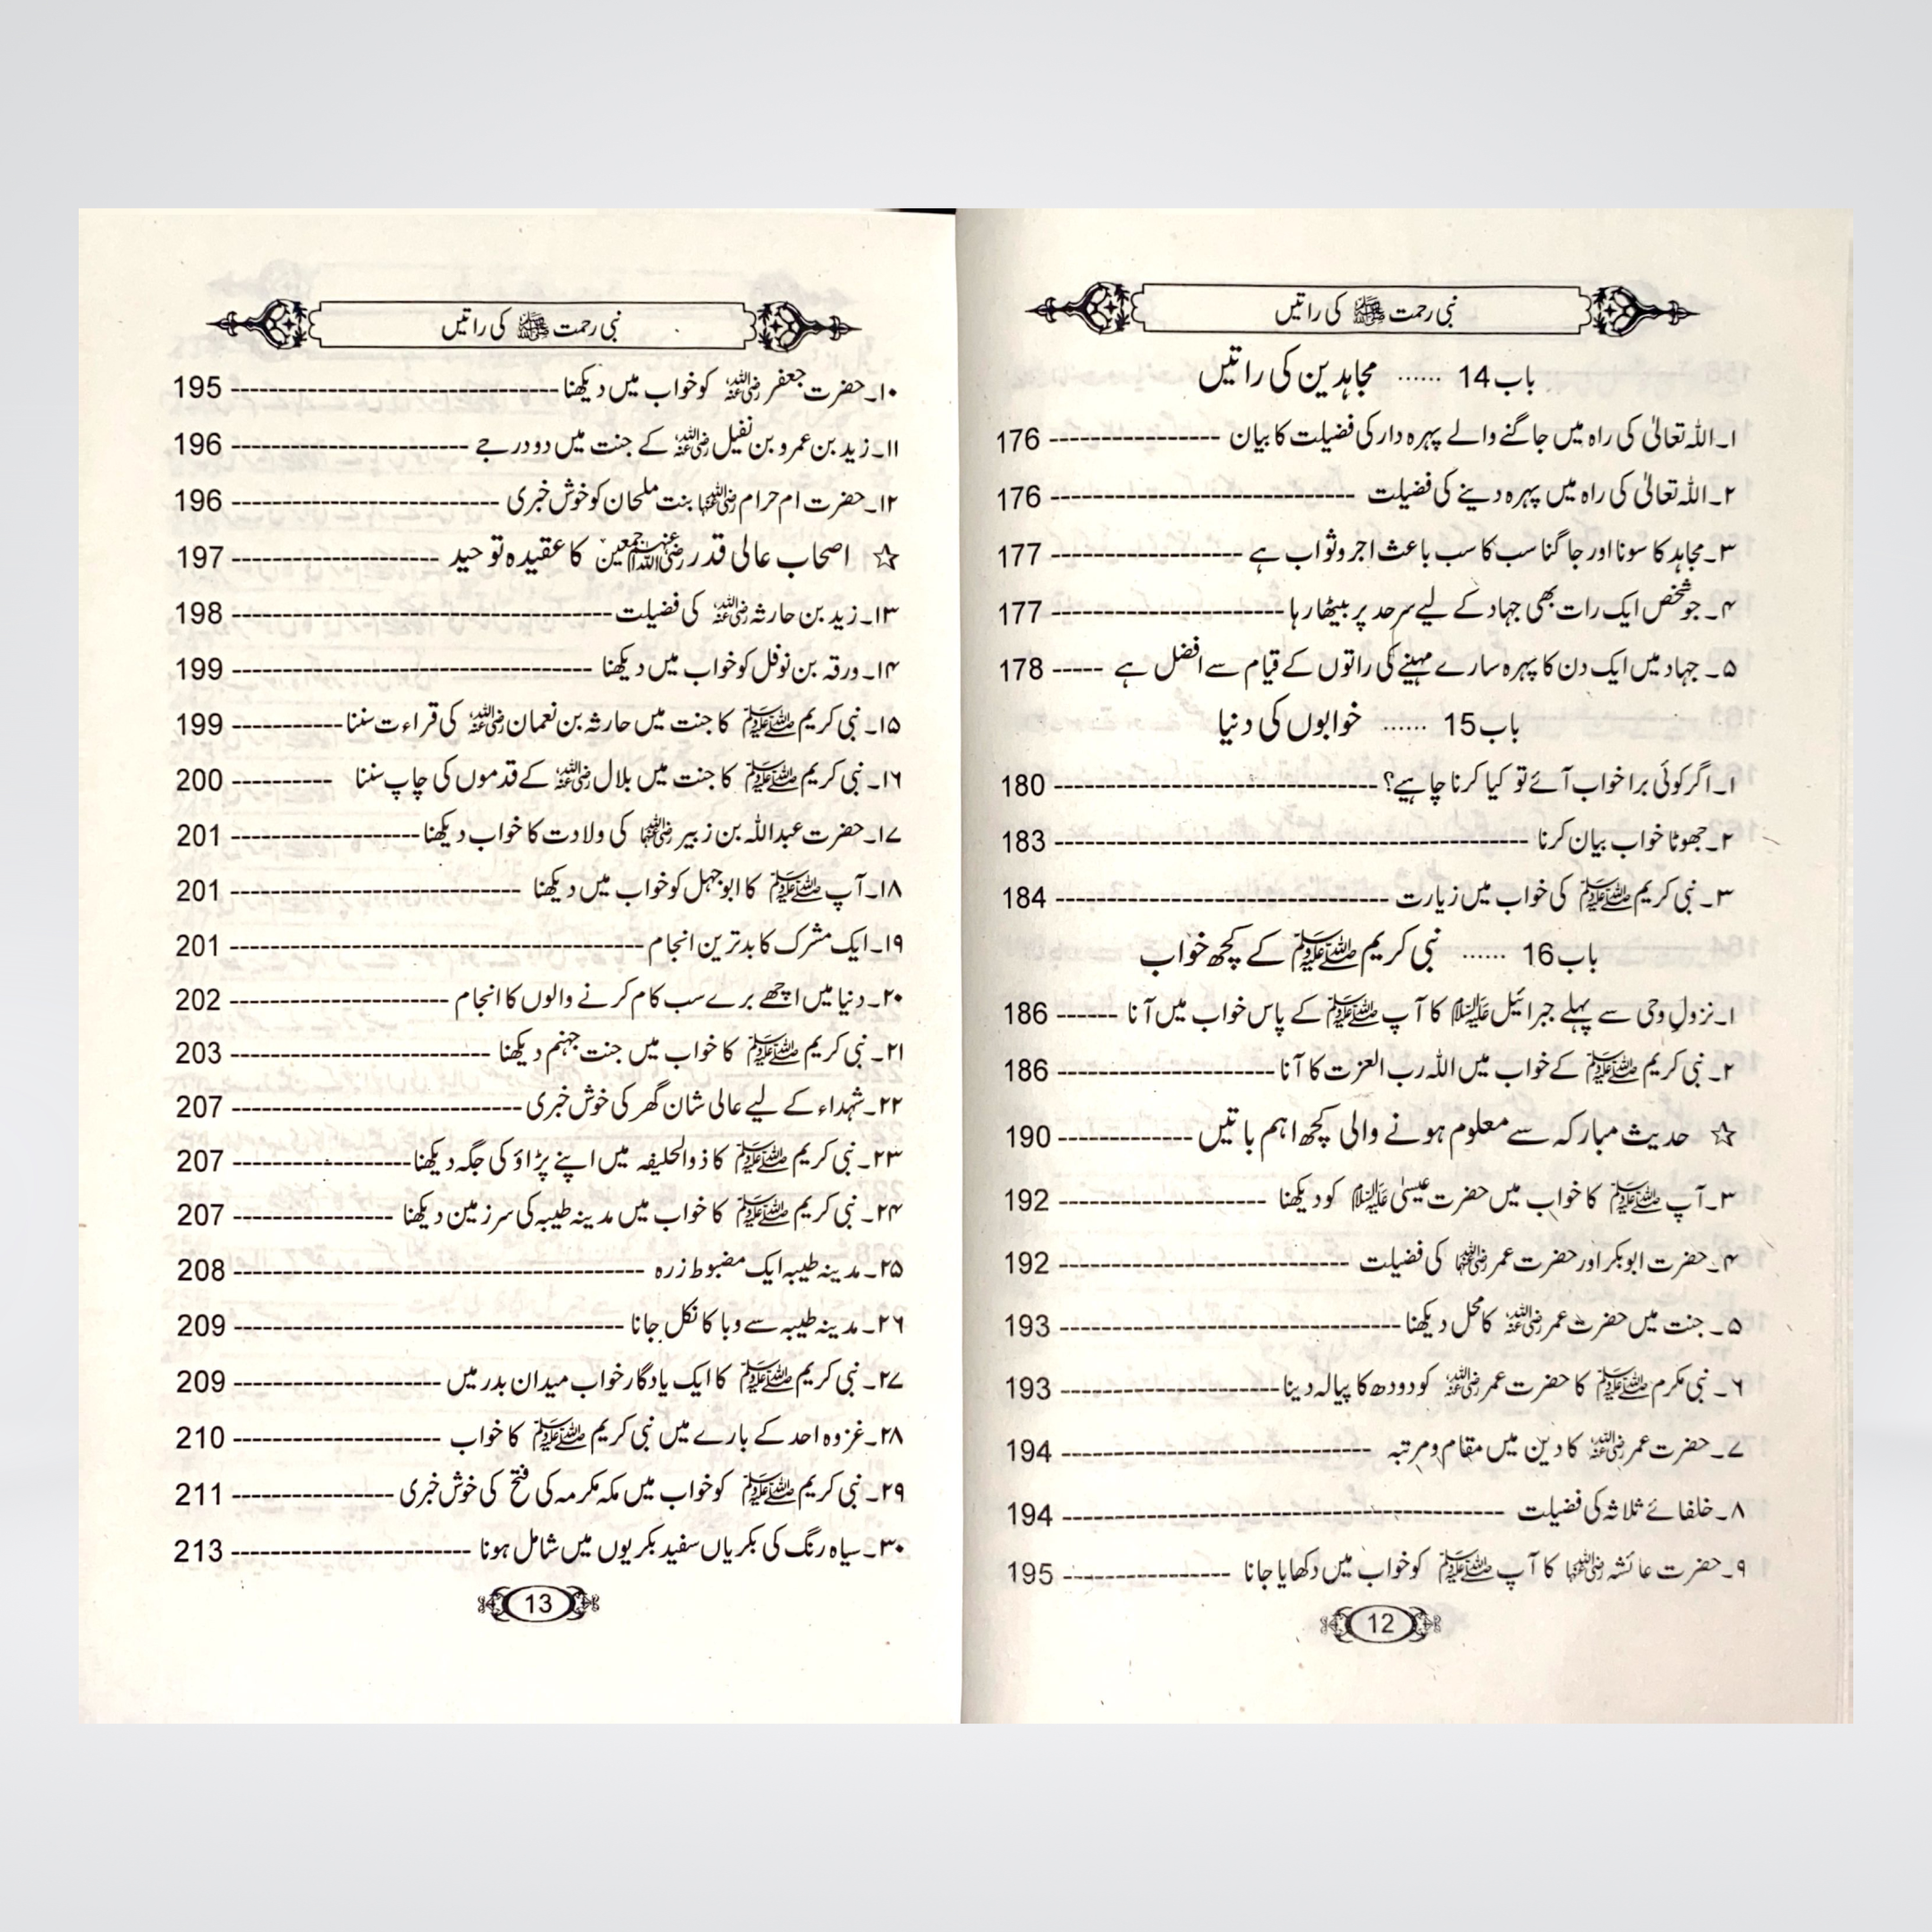 نبی رحمت ﷺ کی راتیں
باب 14 ...... مجاہدین کی راتیں
۱۔ اللہ تعالیٰ کی راہ میں جاگنے والے پہرہ دار کی فضیلت کا بیان ----------------- 176
۲۔ اللہ تعالیٰ کی راہ میں پہرہ دینے کی فضیلت ------------------------------ 176
۳۔ مجاہد کا سونا اور جاگنا سب کا سب باعث اجر و ثواب ہے ------------------- 177
۴۔ جو شخص ایک رات بھی جہاد کے لیے سرحد پر بیٹھا رہا ----------------------- 177
۵۔ جہاد میں ایک دن کا پہرہ سارے مہینے کی راتوں کے قیام سے افضل ہے ----- 178
باب 15 ...... خوابوں کی دنیا
۱۔ اگر کوئی برا خواب آئے تو کیا کرنا چاہیے؟ -------------------------------- 180
۲۔ جھوٹا خواب بیان کرنا ----------------------------------------------- 183
۳۔ نبی کریم ﷺ کی خواب میں زیارت --------------------------------- 184
باب 16 ...... نبی کریم ﷺ کے کچھ خواب
۱۔ نزولِ وحی سے پہلے جبرائیل علیہ السلام کا آپ ﷺ کے پاس خواب میں آنا ------ 186
۲۔ نبی کریم ﷺ کے خواب میں اللہ رب العزت کا آنا --------------------- 186
☆ حدیث مبارکہ سے معلوم ہونے والی کچھ اہم باتیں ------------- 190
۳۔ آپ ﷺ کا خواب میں حضرت عیسیٰ علیہ السلام کو دیکھنا -------------------- 192
۴۔ حضرت ابوبکر اور حضرت عمر رضی اللہ عنہما کی فضیلت ---------------------------- 192
۵۔ جنت میں حضرت عمر رضی اللہ عنہ کا محل دیکھنا --------------------------------- 193
۶۔ نبی مکرم ﷺ کا حضرت عمر رضی اللہ عنہ کو دودھ کا پیالہ دینا --------------------- 193
۷۔ حضرت عمر رضی اللہ عنہ کا دین میں مقام و مرتبہ ------------------------------ 194
۸۔ خلفائے ثلاثہ کی فضیلت ------------------------------------------- 194
۹۔ حضرت عائشہ رضی اللہ عنہا کا آپ ﷺ کو خواب میں دکھایا جانا ---------------- 195
12
نبی رحمت ﷺ کی راتیں
۱۰۔ حضرت جعفر رضی اللہ عنہ کو خواب میں دیکھنا -------------------------------- 195
۱۱۔ زید بن عمرو بن نفیل رضی اللہ عنہ کے جنت میں دو درجے ----------------------- 196
۱۲۔ حضرت ام حرام رضی اللہ عنہا بنت ملحان کو خوش خبری -------------------------- 196
☆ اصحاب عالی قدر رضی اللہ عنہم اجمعین کا عقیدہ توحید -------------------- 197
۱۳۔ زید بن حارثہ رضی اللہ عنہ کی فضیلت ------------------------------------- 198
۱۴۔ ورقہ بن نوفل کو خواب میں دیکھنا ----------------------------------- 199
۱۵۔ نبی کریم ﷺ کا جنت میں حارثہ بن نعمان رضی اللہ عنہ کی قراءت سننا ----------- 199
۱۶۔ نبی کریم ﷺ کا جنت میں بلال رضی اللہ عنہ کے قدموں کی چاپ سننا ---------- 200
۱۷۔ حضرت عبداللہ بن زبیر رضی اللہ عنہما کی ولادت کا خواب دیکھنا ------------------ 201
۱۸۔ آپ ﷺ کا ابوجہل کو خواب میں دیکھنا ---------------------------- 201
۱۹۔ ایک مشرک کا بدترین انجام ---------------------------------------- 201
۲۰۔ دنیا میں اچھے برے سب کام کرنے والوں کا انجام --------------------- 202
۲۱۔ نبی کریم ﷺ کا خواب میں جنت جہنم دیکھنا ------------------------- 203
۲۲۔ شہداء کے لیے عالی شان گھر کی خوش خبری ---------------------------- 207
۲۳۔ نبی کریم ﷺ کا ذوالحلیفہ میں اپنے پڑاؤ کی جگہ دیکھنا ----------------- 207
۲۴۔ نبی کریم ﷺ کا خواب میں مدینہ طیبہ کی سرزمین دیکھنا --------------- 207
۲۵۔ مدینہ طیبہ ایک مضبوط زرہ ---------------------------------------- 208
۲۶۔ مدینہ طیبہ سے وبا کا نکل جانا -------------------------------------- 209
۲۷۔ نبی کریم ﷺ کا ایک یادگار خواب میدان بدر میں -------------------- 209
۲۸۔ غزوہ احد کے بارے میں نبی کریم ﷺ کا خواب -------------------- 210
۲۹۔ نبی کریم ﷺ کو خواب میں مکہ مکرمہ کی فتح کی خوش خبری --------------- 211
۳۰۔ سیاہ رنگ کی بکریاں سفید بکریوں میں شامل ہونا ----------------------- 213
13